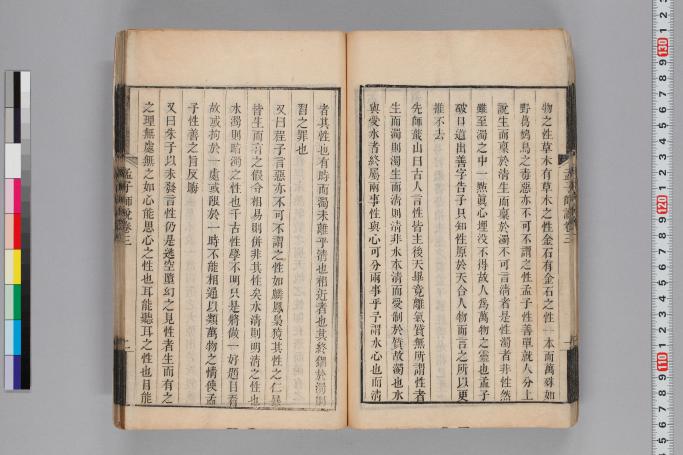 物之性草木有草木之性金石有金石之性一本而萬殊如
野葛鴆鳥之毒惡亦不可不謂之性孟子性善單就人分上
說生而稟於清生而稟於濁不可言清者是性濁者非性然
雖至濁之中一點眞心埋沒不得故人爲萬物之靈也孟子
破口道出善字告子只知性原於天合人物而言之所以更
推不去
先師蕺山曰古人言性皆主後天畢竟離氣質無所謂性者
生而濁則濁生而清則清非水本清而受制於質故濁也水
與受水者終屬兩事性與心可分兩事乎予謂水心也而清
孟子師說卷三
者其性也有時而濁未離乎清也相近者也其終錮於濁則
習之罪也
又曰程子言惡亦不可不謂之性如麟鳳梟獍其性之仁暴
皆生而有之假令相易則併非其性矣水清則明清之性也
水濁則暗濁之性也千古性學不明只是將做一好題目看
故或拘於一處或限於一時不能相通以類萬物之情使孟
子性善之旨反晦
又曰朱子以未發言性仍是逃空墮幻之見性者生而有之
之理無處無之如心能思心之性也耳能聽耳之性也目能
孟子師說卷三
二
130
120
110